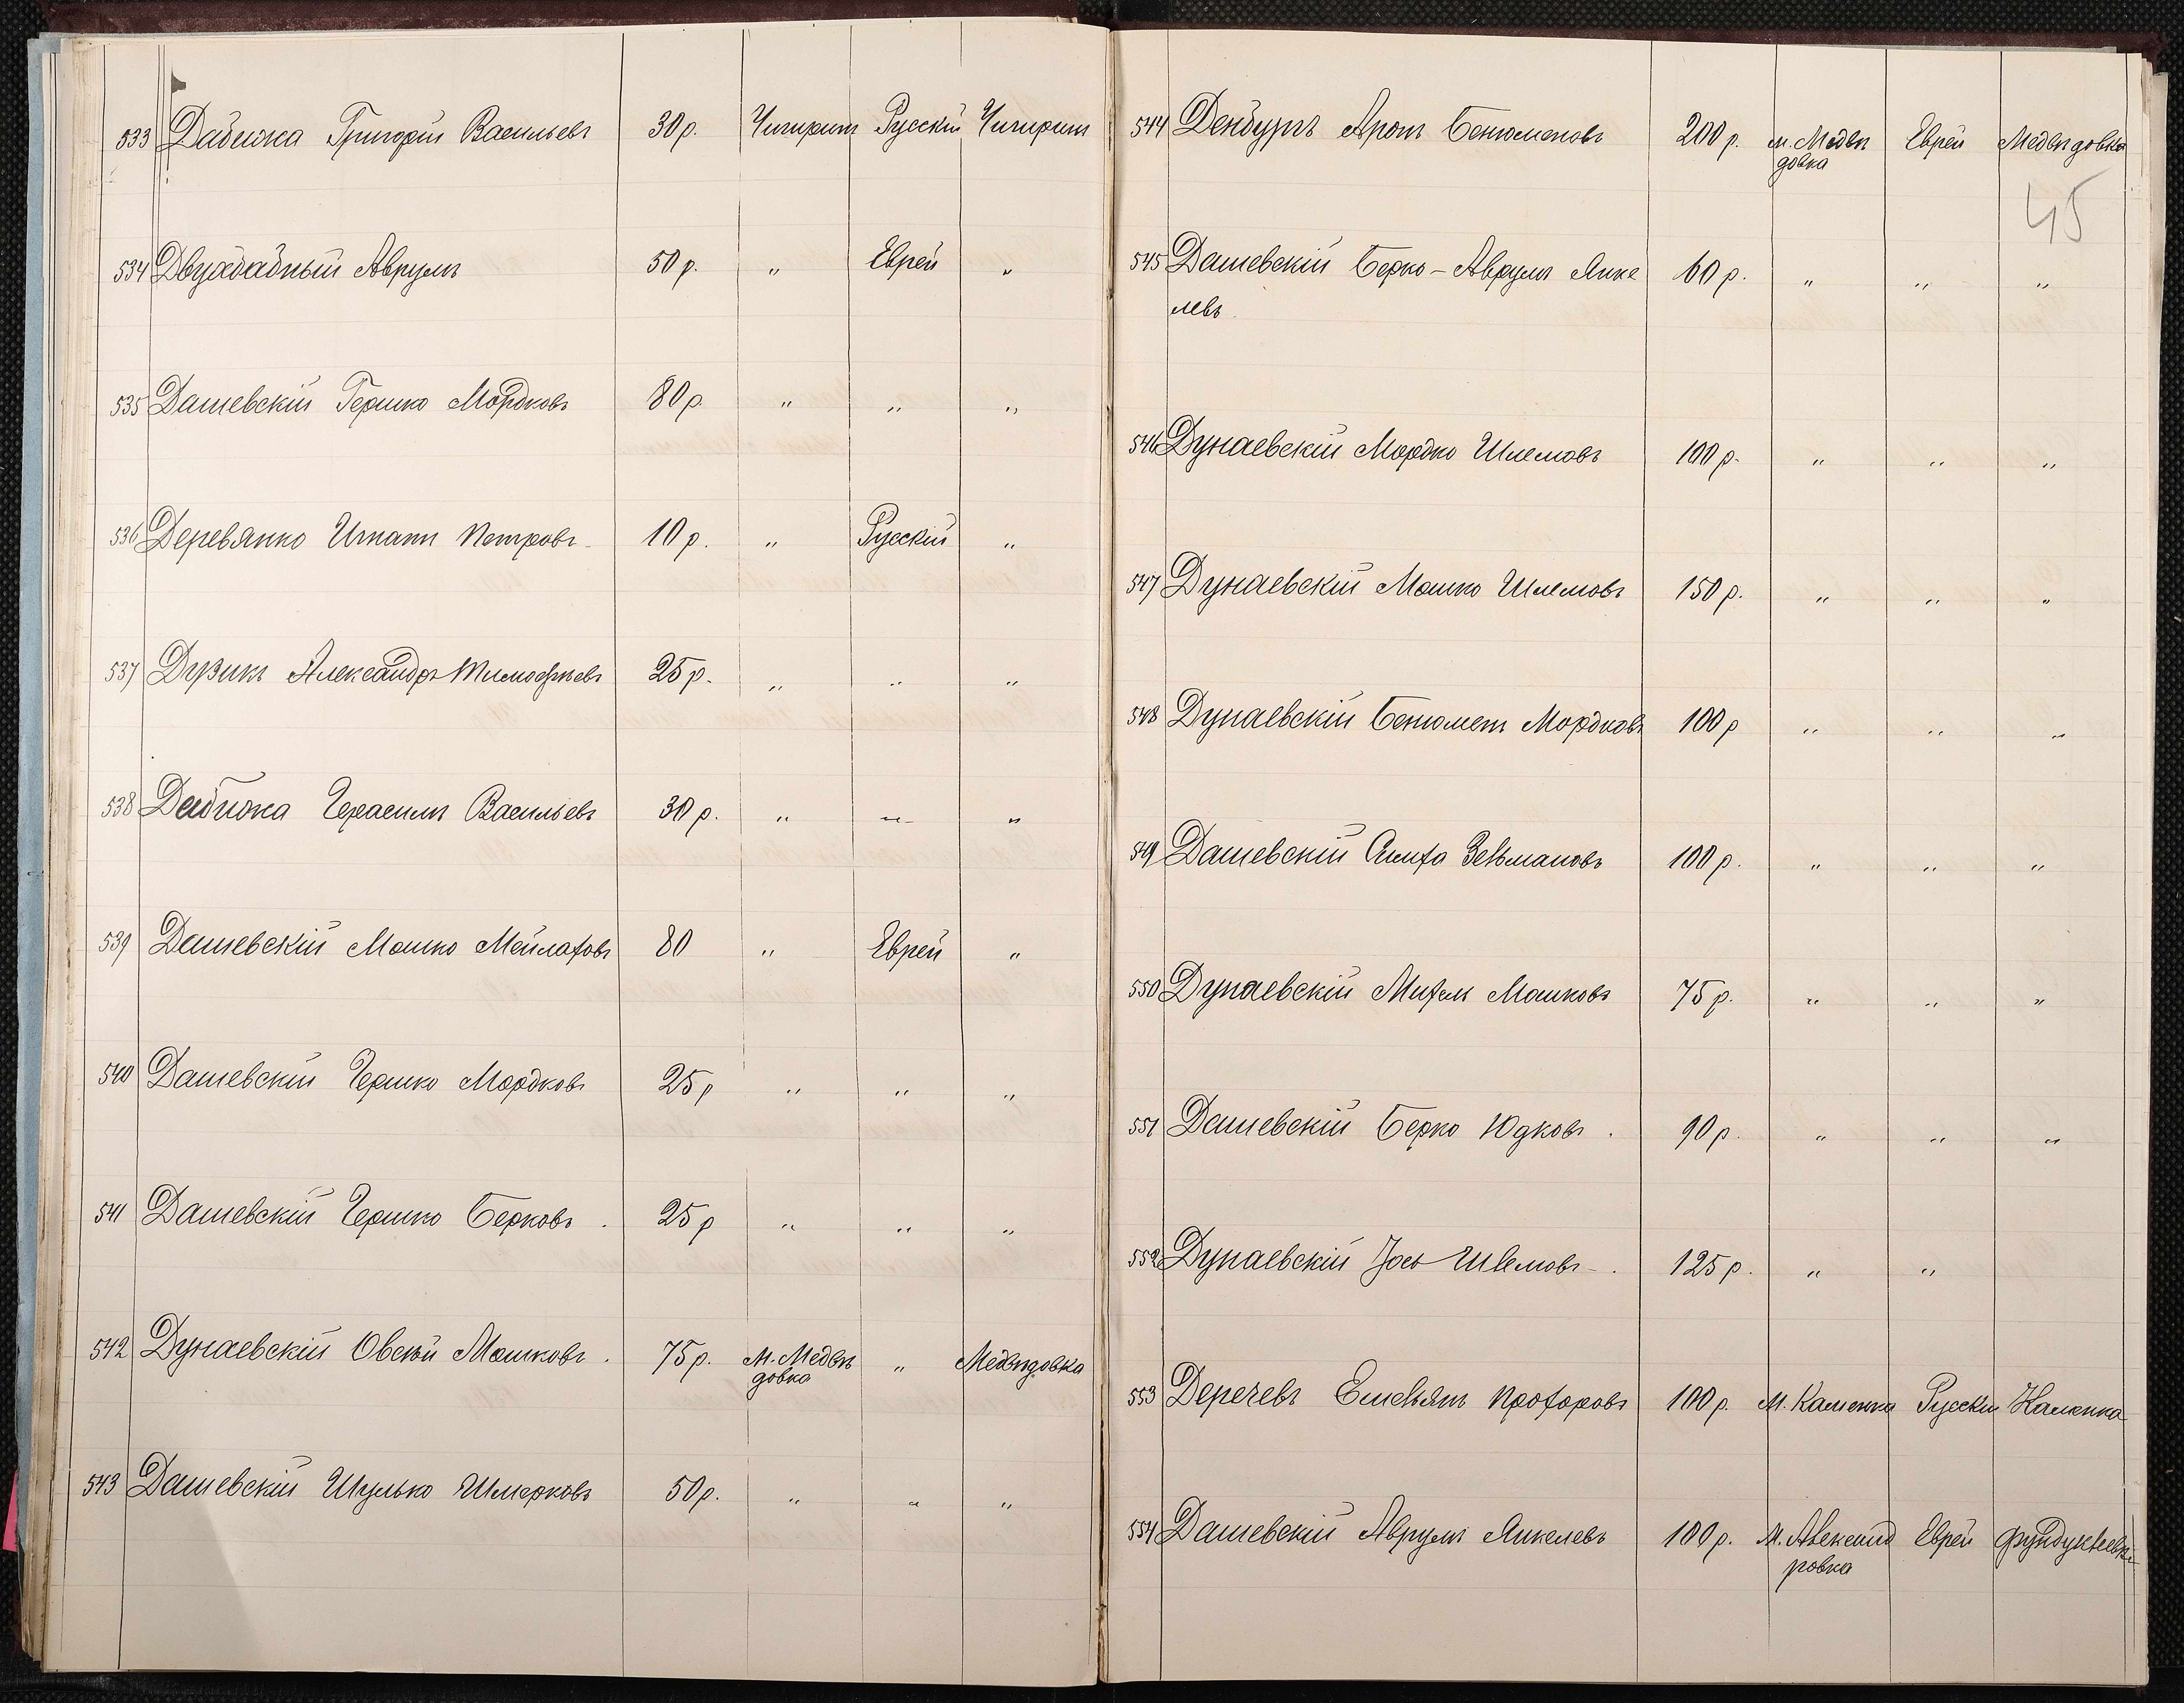 533 Дабижа Григорій Васильевъ 30 р. Чигиринъ Русскій Чигиринъ
534 Двухбабный Аврумъ 50 р. „ Еврей „
535 Дашевскій Гершко Мордковъ 80 р. „ „ „
536 Деревянко Игнатъ Петровъ 10 р. „ Русскій „
537 Дузикъ Александръ Тимофѣевъ 25 р. „ „ „
538 Дабижа Герасимъ Васильевъ 30 р. „ „ „
539 Дашевскій Мошко Мейлаховъ 80 „ Еврей „
540 Дашевскій Гершко Мордковъ 25 р „ „ „
541 Дашевскій Гершко Берковъ. 25 р „ „ „
542 Дунаевскій Овсѣй Мошковъ. 75 р. м. Медвѣ „ Медвѣдовка
довка
543 Дашевскій Шулько Шмерковъ 50 р. „ „ „
544 Денбургъ Аронъ Бенюменовъ 200 р. м. Медвѣ Еврей Медвѣдовка
довка
45
545 Дашевскій Берко-Аврумъ Янке 60 р. „ „ „
левъ
546 Дунаевскій Мордко Шлемовъ 100 р. „ „ „
547 Дунаевскій Мошко Шлемовъ 150 р. „ „ „
548 Дунаевскій Бенюменъ Мордковъ 100 р „ „ „
549 Дашевскій Симха Зельмановъ 100 р. „ „ „
550 Дунаевскій Михель Мошковъ 75 р. „ „ „
551 Дашевскій Берко Юдковъ. 90 р. „ „ „
552 Дунаевскій Іось Шлемовъ. 125 р. „ „
553 Деречевъ Емельянъ Прохоровъ 100 р. м. Каменка Русскій Каменка
554 Дашевскій Аврумъ Янкелевъ 100 р. м. Александ Еврей Фундуклеевк
ровка